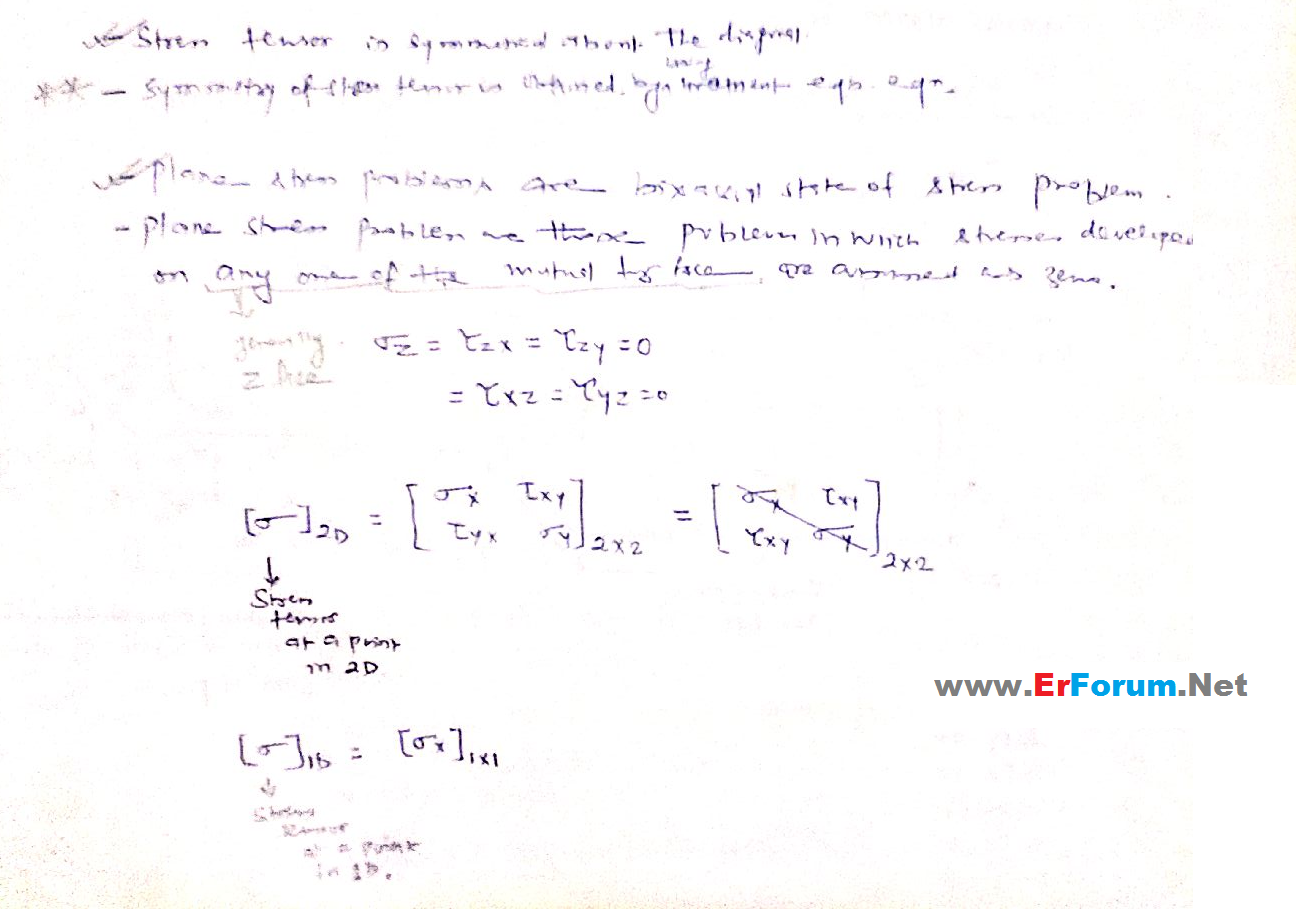 Stress tensor is symmetrical about the diagonal.
using
** - Symmetry of stress tensor is obtained by moment eqb. eqn.
Plane stress problems are biaxial state of stress problem.
- Plane stress problem are those problem in which stresses developed
on any one of the mutual face are assumed as zero.
generally z face
σz = τzx = τzy = 0
= τxz = τyz = 0
[σ]2D = [σx τxy
τyx σy]2×2 = [σx τxy
τxy σy]2×2
↓
Stress
tensor
at a point
in 2D
www.ErForum.Net
[σ]1D = [σx]1×1
↓
Stress
tensor
at a point
in 1D.